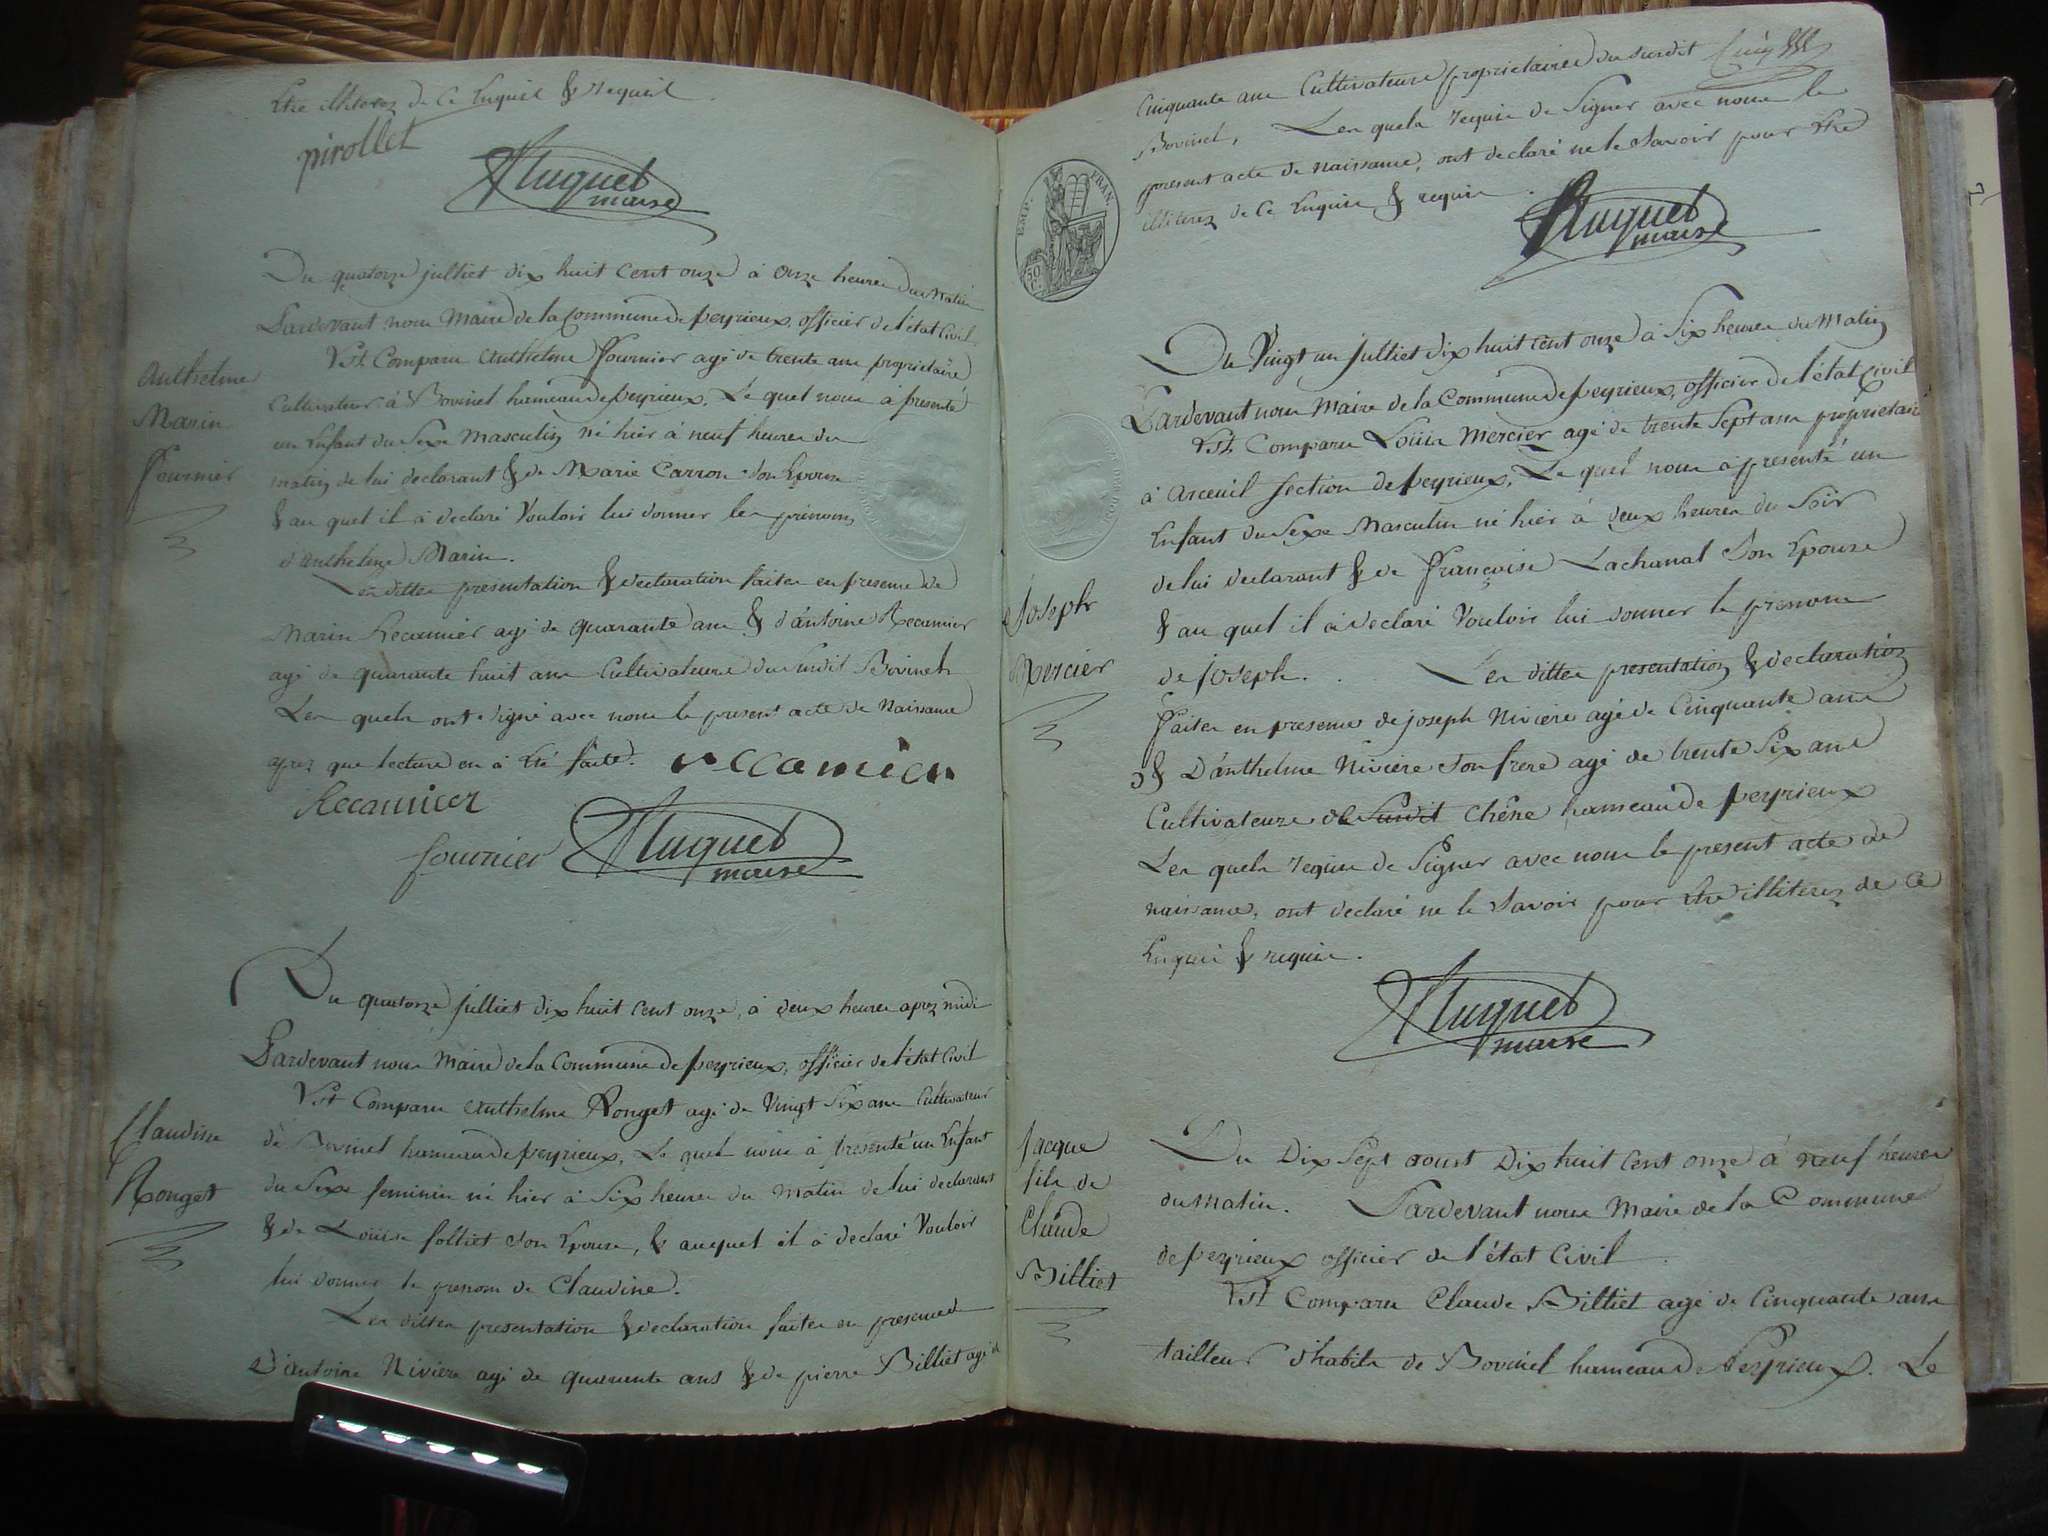 Etre illiterez de ce Enquis & requis.
pirollet
Huguet
maire
Du quatorze julliet dix huit cent onze à onze heures du Matin
Pardevant nous Maire de la Commune de peyrieux, officier de l'état Civil.
Est Comparu Anthelme Fournier agé de trente ans proprietaire
Cultivateur à Bovinel hameau de peyrieux, Le quel nous à presenté
un Enfant du Sexe Masculin né hier à neuf heures du
matin de lui declarant & de Marie Carron son Epouse
& au quel il à declaré Vouloir lui donner les prénoms
d'anthelme Marin.
Les dittes presentation & declaration faites en presence de
Marin Recamier agé de quarante ans & d'antoine Recamier
agé de quarante huit ans Cultivateurs du susdit Bovinel
Les quels ont signé avec nous le present acte de Naissance
aprez que lecture en à été faite. reccamier
Recamier
fournier Huguet
maire
Anthelme
Marin
Fournier
Du quatorze julliet dix huit cent onze, à deux heures aprez midi
Pardevant nous Maire de la Commune de peyrieux, officier de l'état Civil
Est Comparu Anthelme Ronget agé de Vingt Six ans Cultivateur
de Bovinel hameau de peyrieux, Le quel nous à presenté un Enfant
du Sexe feminin né hier à Six heures du Matin de lui declarant
& de Loüise folliet son Epouse, & auquel il à declaré Vouloir
lui donner le prenom de Claudine.
Les dittes presentation & declaration faites en presence
D'antoine Niviere agé de quarante ans & de pierre Billiet agé de
Claudine
Ronget
Cinquante ans Cultivateurs proprietaires du susdit
Bovinel, Les quels requis de Signer avec nous le
present acte de naissance, ont declaré ne le Savoir pour Etre
illiterez de ce Enquis & requis.
EMP. FRAN.
50
C.
Huguet
maire
Du Vingt un Julliet dix huit cent onze à Six heures du Matin
Pardevant nous Maire de la Commune de peyrieux, officier de l'état Civil
Est Comparu Loüis Mercier agé de trente Sept ans proprietaire
à arceuil Section de peyrieux, Le quel nous à presenté un
Enfant du Sexe Masculin né hier à deux heures du Soir
de lui declarant & de Françoise Lachanal Son Epouse
& au quel il à declaré Vouloir lui donner le prenom
de joseph. Les dittes presentation & declaration
faites en presence de joseph Niviere agé de Cinquante ans
& D'anthelme Niviere son frere agé de trente Six ans
Cultivateurs de Susdit Chêne hameau de peyrieux
Les quels requis de Signer avec nous le present acte de
naissance, ont declaré ne le savoir pour Etre illiterez de ce
Enquis & requis.
Joseph
Mercier
Huguet
maire
Du Dix Sept aoust Dix huit Cent onze à neuf heures
du Matin. Pardevant nous Maire de la Commune
de peyrieux officier de l'état Civil.
Est Comparu Claude Billiet agé de Cinquante ans
tailleur d'habits de Bovinel hameau de Peyrieux. Le
Jacque
fils de
Claude
Billiet